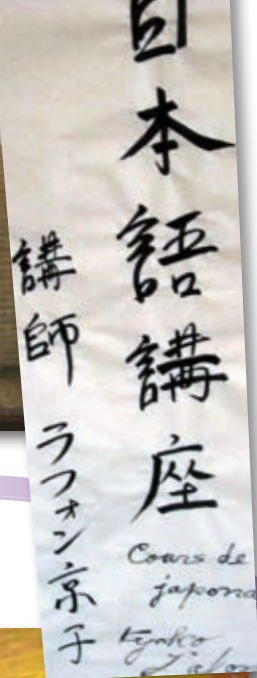 日本語講座
講師 ラフォン京子
Cours de
japona
Kyoko